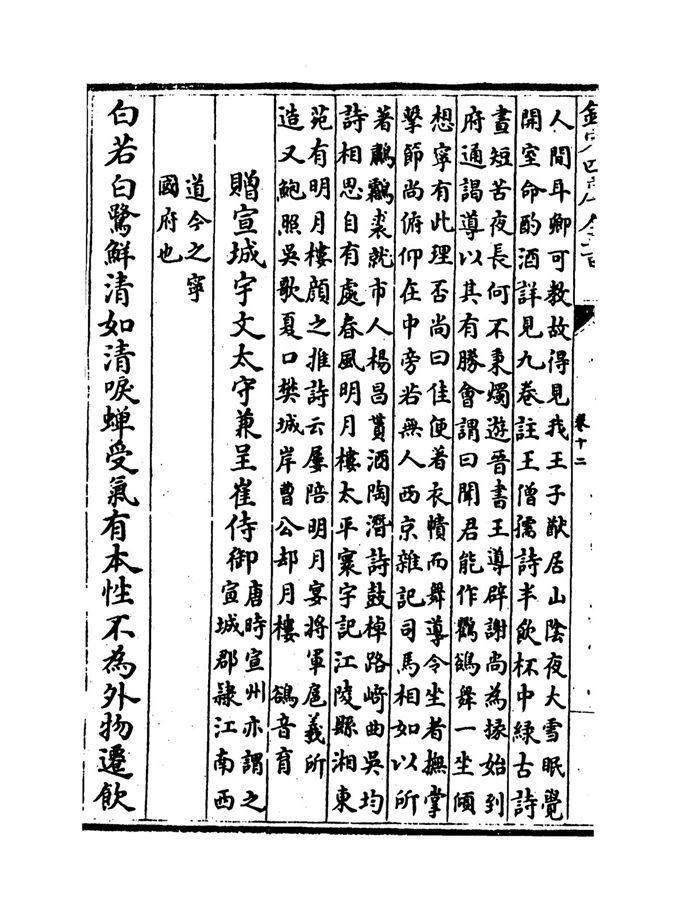 卷十二
人間耳卿可教故得見我王子猷居山陰夜大雪眠覺
開室命酌酒詳見九卷註王僧孺詩半飲杯中緑古詩
晝短苦夜長何不秉燭遊晉書王導辟謝尚為掾始到
府通謁導以其有勝會謂曰聞君能作鸜鵒舞一坐傾
想寧有此理否尚曰佳便着衣幘而舞導令坐者撫掌
擊節尚俯仰在中旁若無人西京雜記司馬相如以所
著鷫鸘裘就市人楊昌貰酒陶潛詩鼓棹路崎曲吳均
詩相思自有處春風明月樓太平寰宇記江陵縣湘東
苑有明月樓顔之推詩云屢陪明月宴將軍扈義所
造又鮑照吳歌夏口樊城岸曹公却月樓 鵒音育
贈宣城宇文太守兼呈崔侍御
唐時宣州亦謂之
宣城郡隸江南西
道今之寧
國府也
白若白鷺鮮清如清唳蟬受氣有本性不為外物遷飲